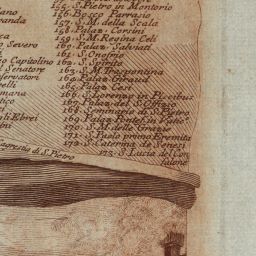 155. S. Pietro in Montorio
156. Bosco Parrasio
157. S. M. della Scala
158. Palaz. Corsini
159. S. M. Regina Celi
160. Palaz. Salviati
161. S. Onofrio
162. S. Spirito
163. S. M. Traspontina
164. Palaz. Giraud
165. Palaz. Cesi
166. S. Lorenzo in Piscibus
167. Palaz. del S. Offizio
168. Seminario di S. Pietro
169. Palaz. Pontef. in Vatic.
170. S. M. delle Grazie
171. S. Paolo primo Eremita
172. S. Caterina da Siena
173. S. Lucia del Con
falone
o Severo
o Capitolino
l Senatore
servatori
relli
omano
tico
oli Ebrei
ini
agrestia di S. Pietro